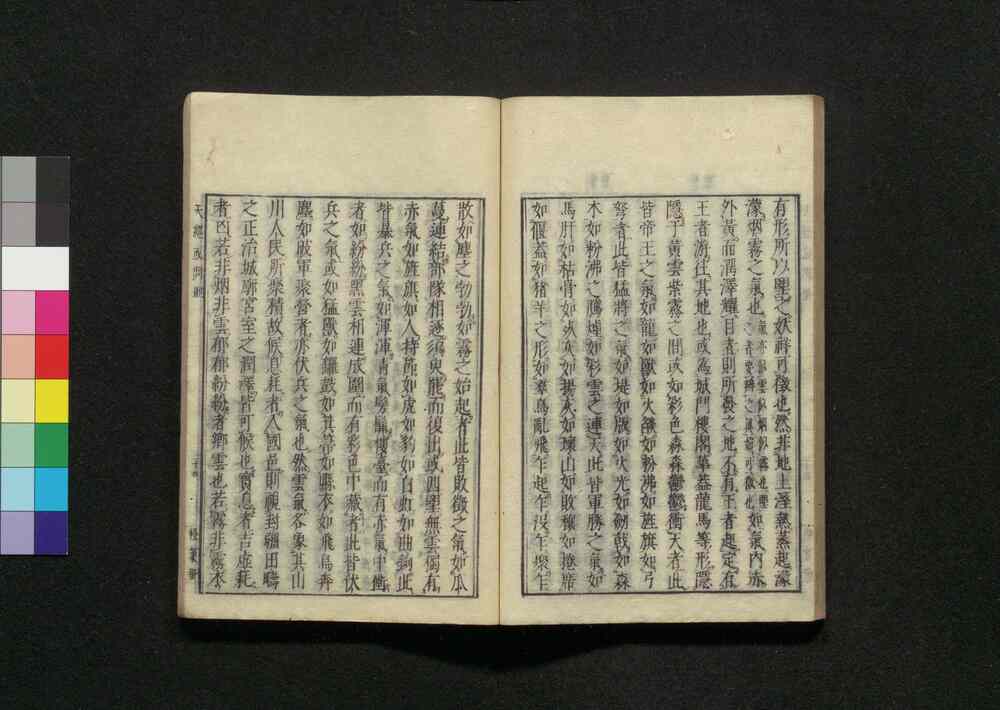 有形所以望之妖祥可徵也然非地上溼熱蒸起濛
濛烟霧之氣也如氣內赤
外黃而潤澤耀日者則所發之地不有王者起定有
王者游往其地也或為城門樓閣華蓋龍馬等形隱
隱于黃雲紫霧之間或如彩色森森鬱鬱衝天者此
皆帝王之氣如龍如獸如火如粉沸如旌旗如弓
弩者此皆猛將之氣如堤如坂如火光如劒戟如森
木如粉沸之騰如彩雲之連天此皆軍勝之氣如
馬肝如枯骨如死灰如揚灰如壞山如敗穰如捲席
如偃蓋如猪羊之形如羣鳥亂飛乍起乍沒乍聚乍
散如塵之勃勃如霧之始起者此皆敗徵之氣如瓜
蔓連結部隊相逐須臾罷而復出或四望無雲獨有
赤氣如旌旗如人持節如虎如豹如白虹如曲鉤此
皆暴兵之氣如渾渾青氣旁開樓臺而有赤氣中衝
者如紛紛黑雲相連成圍而有彩色中藏者此皆伏
兵之氣或如猛獸如鑼鼓如箕箒如衣如飛鳥奔
塵如敗軍張督者亦伏兵之氣也然雲氣各象其山
川人民所聚積故候息耗者入國邑則視封疆田疇
之正治城廓宮室之潤澤皆可候也實息者吉虛耗
者凶若非烟非雲郁郁紛紛者卿雲也若霧非霧衣
天經或問